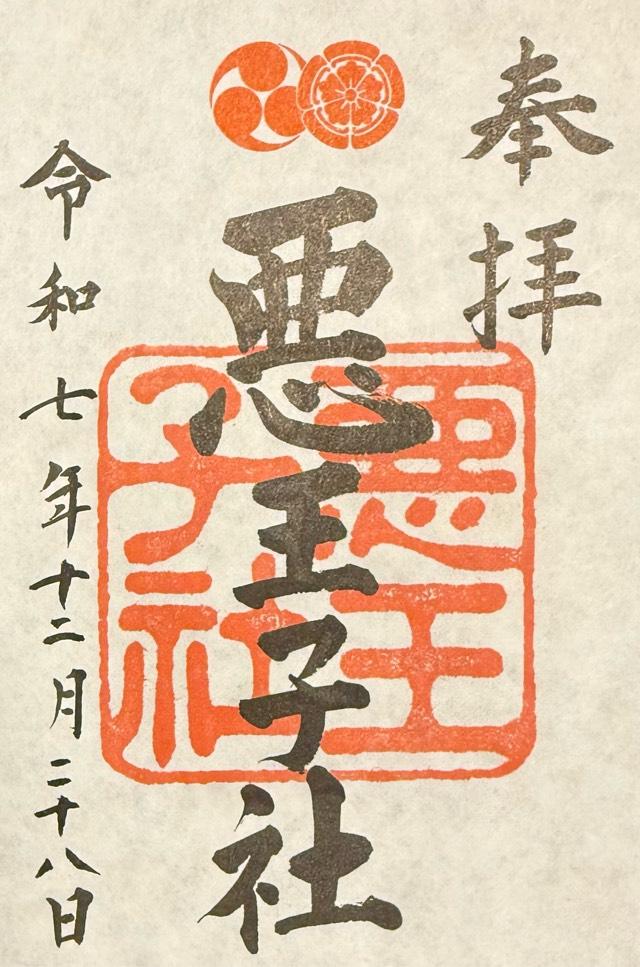 奉拝
悪王子社
悪王
子社
令和七年十二月二十八日